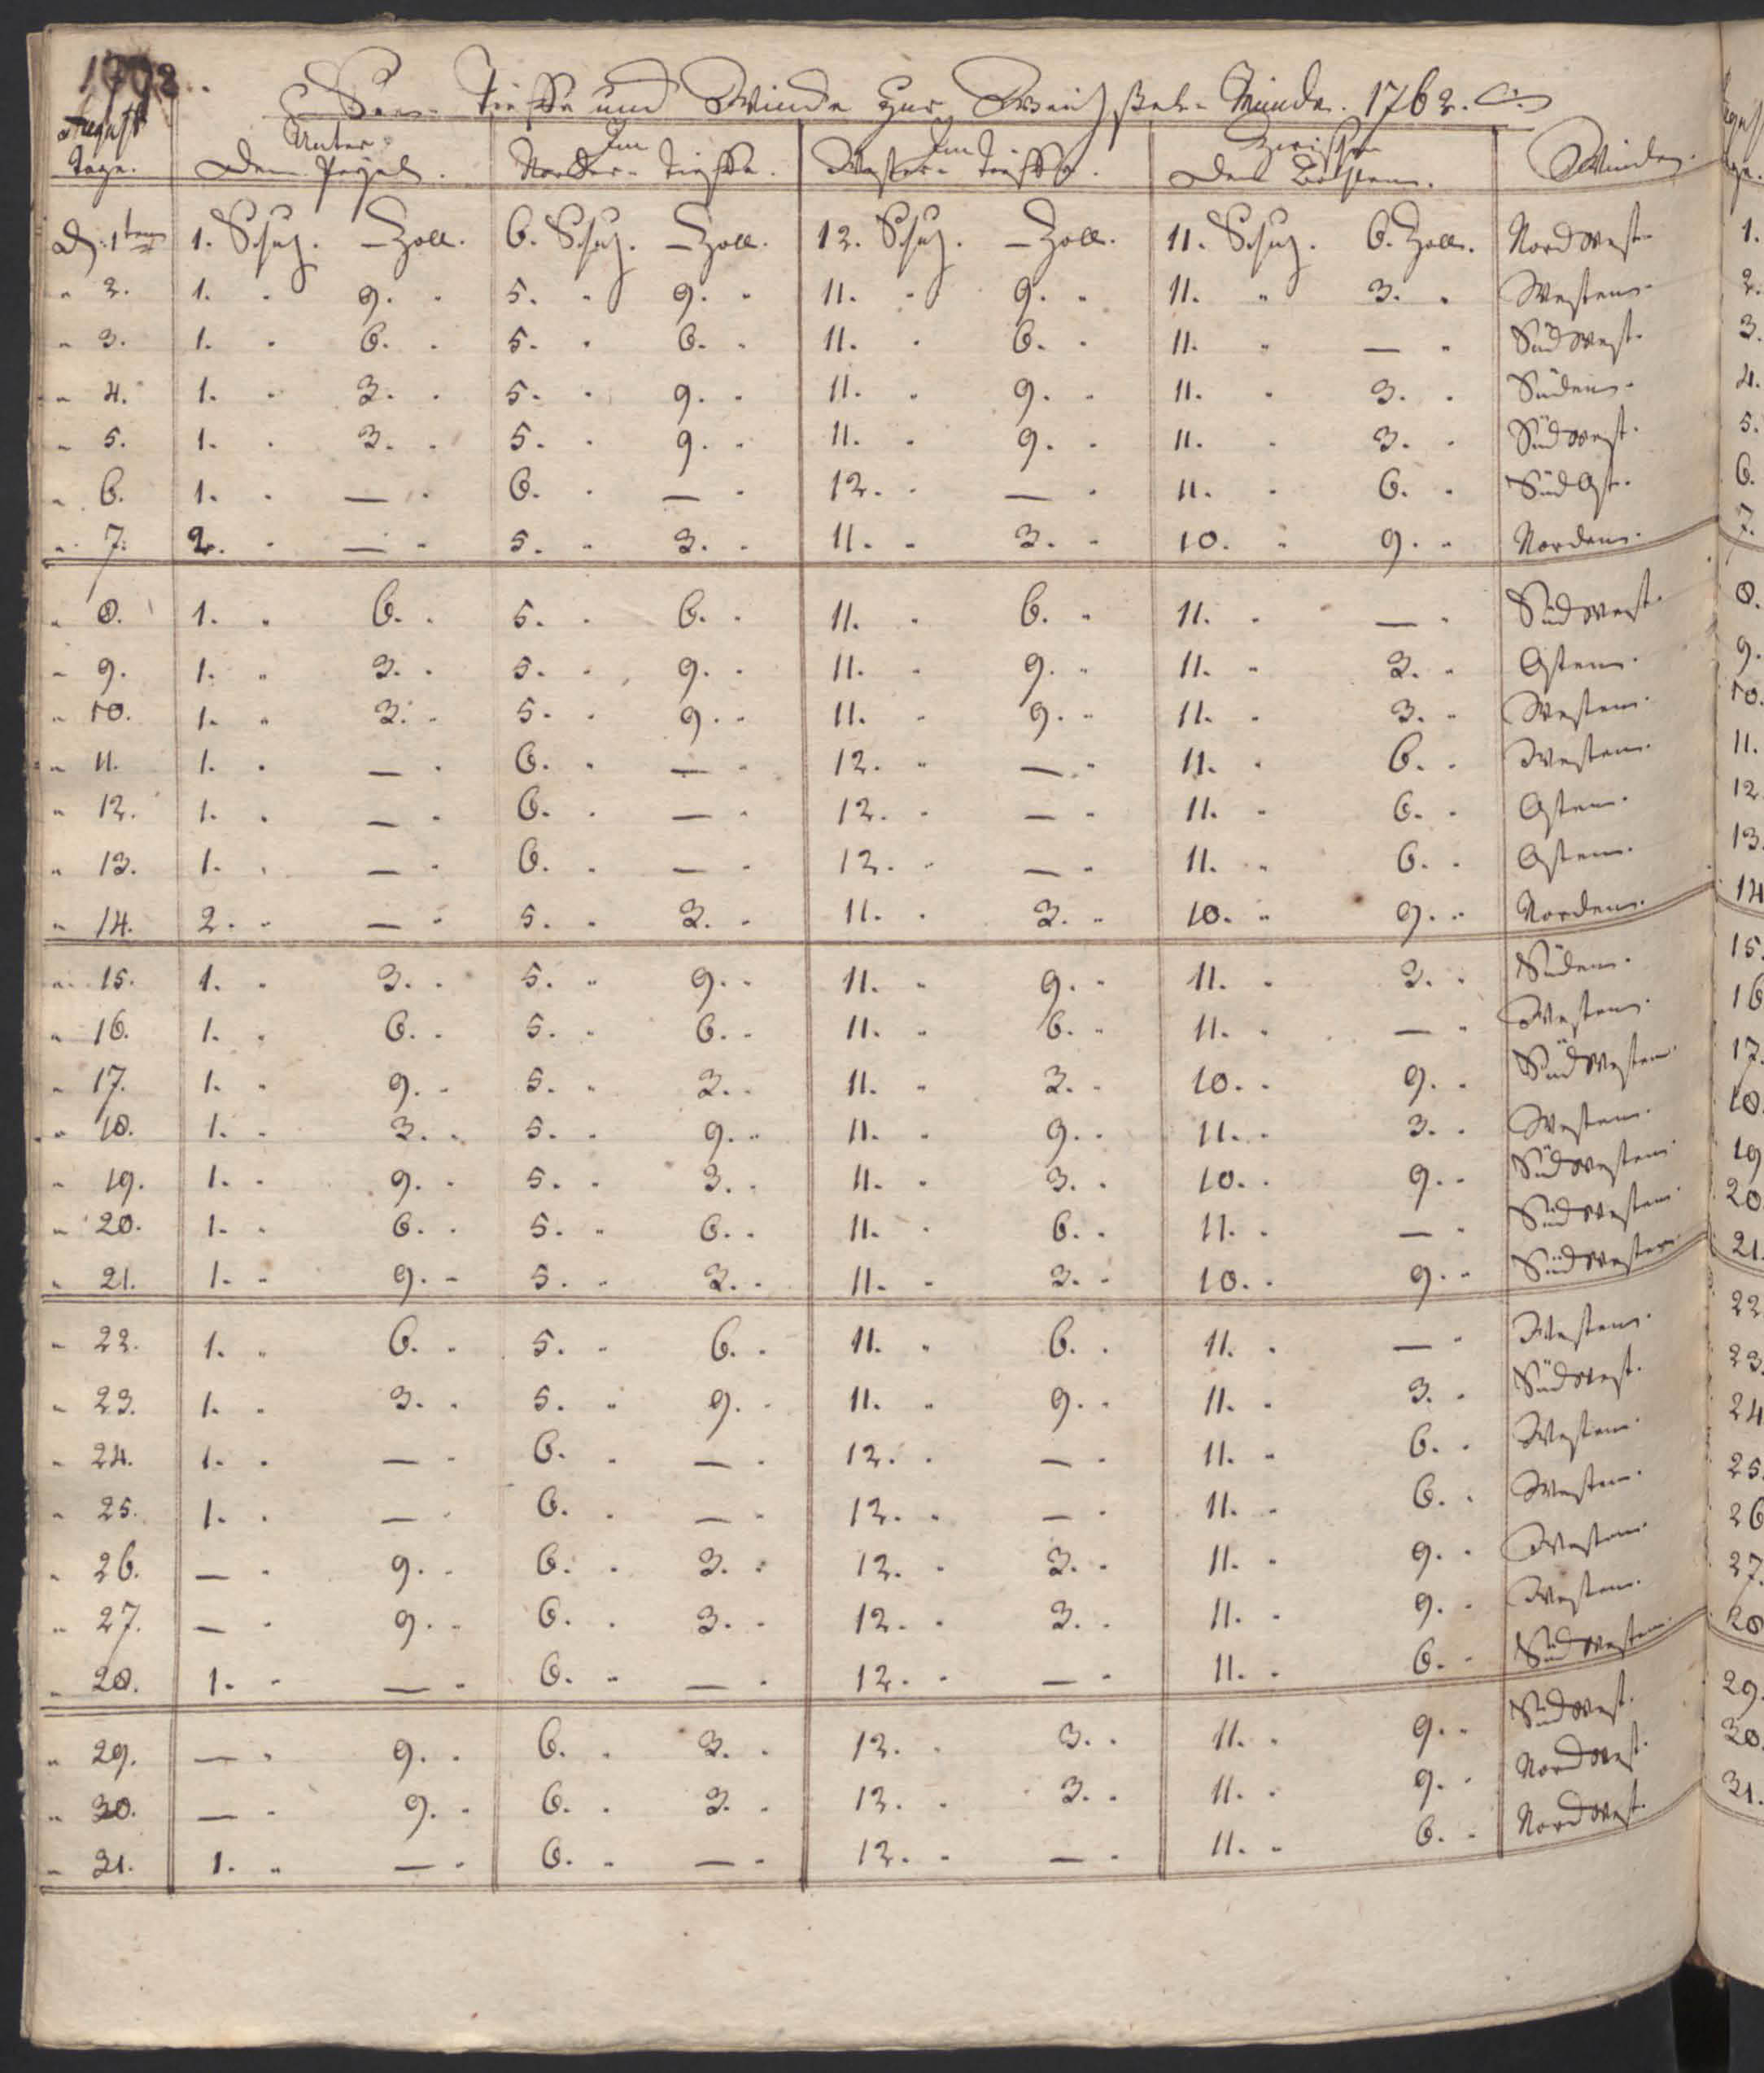 1762.
See- Tieffe und Winde zur Weichßel- Münde. 1762.
August Tage. Unter dem Pegel. Im Norder- Tieffe. Im Wester- Tieffe. Zwischen den Winden.
D. 1ten 1. Schuh. — Zoll. 6. Schuh. — Zoll. 12. Schuh. — Zoll. 11. Schuh. 6. Zoll. Nordwest.
" 2. 1. " 9. " 5. " 9. " 11. " 9. " 11. " 3. " Westen.
" 3. 1. " 6. " 5. " 6. " 11. " 6. " 11. " — " Südwest.
" 4. 1. " 3. " 5. " 9. " 11. " 9. " 11. " 3. " Süden.
" 5. 1. " 3. " 5. " 9. " 11. " 9. " 11. " 3. " Südwest.
" 6. 1. " — " 6. " — " 12. " — " 11. " 6. " SüdOst.
" 7. 2. " — " 5. " 3. " 11. " 3. " 10. " 9. " Norden.
" 8. 1. " 6. " 5. " 6. " 11. " 6. " 11. " — " Südwest.
" 9. 1. " 3. " 5. " 9. " 11. " 9. " 11. " 3. " Osten.
" 10. 1. " 3. " 5. " 9. " 11. " 9. " 11. " 3. " Westen.
" 11. 1. " — " 6. " — " 12. " — " 11. " 6. " Westen.
" 12. 1. " — " 6. " — " 12. " — " 11. " 6. " Osten.
" 13. 1. " — " 6. " — " 12. " — " 11. " 6. " Osten.
" 14. 2. " — " 5. " 3. " 11. " 3. " 10. " 9. " Norden.
" 15. 1. " 3. " 5. " 9. " 11. " 9. " 11. " 3. " Süden.
" 16. 1. " 6. " 5. " 6. " 11. " 6. " 11. " — " Westen.
" 17. 1. " 9. " 5. " 3. " 11. " 3. " 10. " 9. " Südwesten.
" 18. 1. " 3. " 5. " 9. " 11. " 9. " 11. " 3. " Westen.
" 19. 1. " 9. " 5. " 3. " 11. " 3. " 10. " 9. " Südwesten.
" 20. 1. " 6. " 5. " 6. " 11. " 6. " 11. " — " Südwesten.
" 21. 1. " 9. " 5. " 3. " 11. " 3. " 10. " 9. " Südwesten.
" 22. 1. " 6. " 5. " 6. " 11. " 6. " 11. " — " Westen.
" 23. 1. " 3. " 5. " 9. " 11. " 9. " 11. " 3. " Südwest.
" 24. 1. " — " 6. " — " 12. " — " 11. " 6. " Westen.
" 25. 1. " — " 6. " — " 12. " — " 11. " 6. " Westen.
" 26. — " 9. " 6. " 3. " 12. " 3. " 11. " 9. " Westen.
" 27. — " 9. " 6. " 3. " 12. " 3. " 11. " 9. " Westen.
" 28. 1. " — " 6. " — " 12. " — " 11. " 6. " Südwesten.
" 29. — " 9. " 6. " 3. " 12. " 3. " 11. " 9. " Südwest.
" 30. — " 9. " 6. " 3. " 12. " 3. " 11. " 9. " Nordwest.
" 31. 1. " — " 6. " — " 12. " — " 11. " 6. " Nordwest.
1.
2.
3.
4.
5.
6.
7.
8.
9.
10.
11.
12
13.
14
15.
16
17.
18.
19
20
21.
22
23.
24
25.
26
27.
28
29.
30.
31.